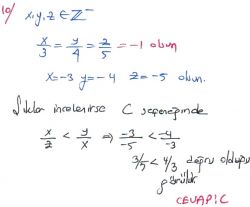 10/ x,y,z ∈ Z⁻
x/3 = y/4 = z/5 = -1 olsun
x=-3 y=-4 z=-5 olsun.
Şıklar incelenirse C seçeneğinde
x/z < y/x ⇒ -3/-5 < -4/-3
3/5 < 4/3 doğru olduğu
görülür
CEVAP: C